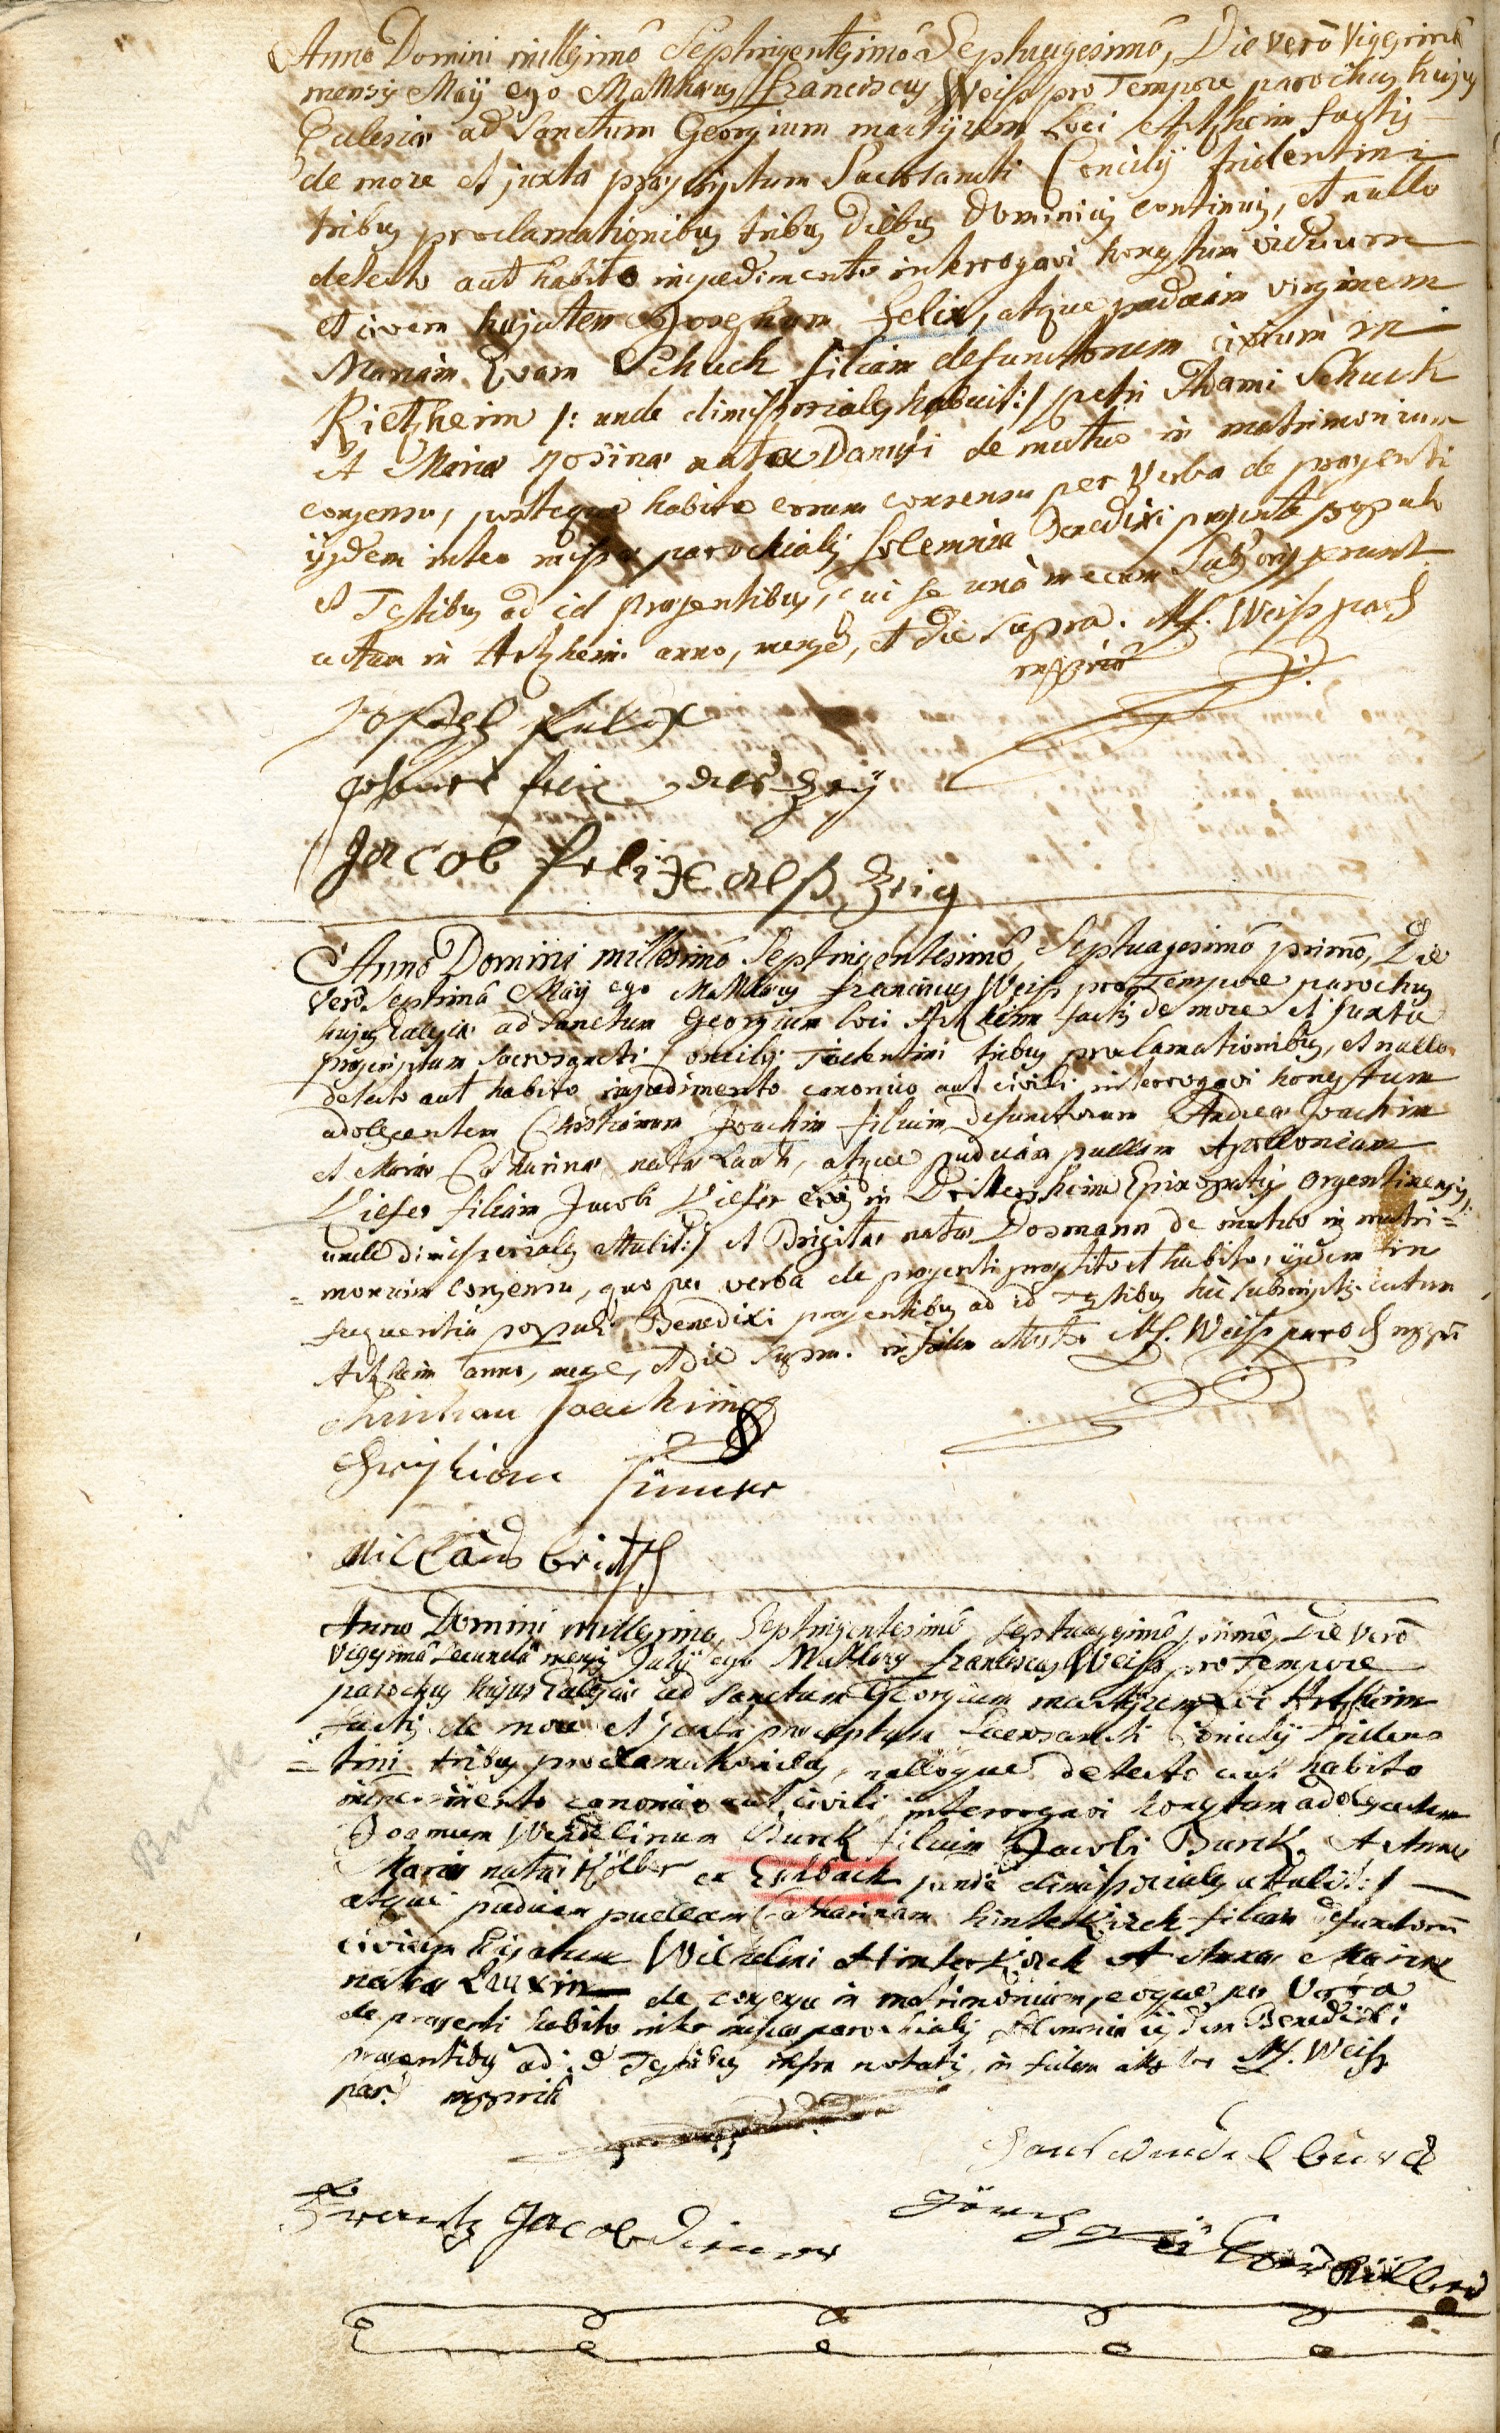 Anno Domini millesimô Septingentesimô Septuagesimô, Die verô Vigesimâ
mensis Maÿ ego Matthæus franciscus Weiss pro Tempore parochus hujus
Eclesiæ ad Sanctum Georgium martÿrem loci Artzheim factis
de more et juxta præscriptum Sacrosancti Concilÿ tridentini
tribus proclamationibus tribus diebus Dominicis continuis, et nullo
detecto aut habito impedimento interrogavi honestum viduum
et civem hujatem Josephum felix, atque pudicam virginem
Mariam Evam Schuck filiam defunctorum civium in
Rietzheim /: unde dimissoriales habuit:/ petri Thami Schuck
et Mariæ rosinæ natæ Damisi de mutuo in matrimonium
consensu, posteque habito eorum consensu per verba de præsenti
ijsdem inter missæ parochialis solemnia Benedixi præsente populo
et Testibus ad id præsentibus, qui se unà mecum Subscripserunt
actum in Artzheim anno, mense, et die supra. Mf. Weiss paroch
mppriâ
Joseph felix
Johanes felix als Zeÿ
Jacob felix alß Zeig
Anno Domini millesimô Septingentesimô, Septuagesimô primô, Die
verô Septimâ Maÿ ego Matthæus franciscus Weiss pro Tempore parochus
hujus Ecclesiæ ad Sanctum Georgium loci Artzheim factis de more et juxta
præscriptum Sacrosancti Concilÿ Tridentini tribus proclamationibus, et nullo
detecto aut habito impedimento canonico aut civili interrogavi honestum
adolescentem Christianum Joachim filium defunctorum Andreæ Joachim
et Mariæ Catharinæ natæ Lauth, atque pudicam puellam Apolloniam
Kiefer filiam Jacobi Kiefer civis in Drittersheim Episcopatûs Argentinensis /:
unde dimissoriales attulit:/ et Brigitæ natæ Dosmann de mutuo in matri=
= monium consensu, quo per verba de præsenti præstito et habito, ijsdem in
frequentia populi Benedixi præsentibus ad id Testibus hîc subscriptis. actum
Artzheim anno, mense, et die supra. in fidem attestor Mf. Weiss paroch mppr
Christian Joachim
Christian
Anno Domini millesimo, Septingentesimô Septuagesimô primô, Die verô
Vigesimâ secundâ mensis Julÿ ego Matthæus franciscus Weiss pro Tempore
parochus hujus Ecclesiæ ad Sanctum Georgium martÿrem loci Artzheim
factis de more et juxta præceptum Sacrosancti Concilÿ Triden
= tini tribus proclamationibus, nulloque detecto aut habito
impedimento canonico aut civili interrogavi honestum adolescentem
Joannem Wendelinum Burck filium Jacobi Burck et Annæ
Mariæ natæ Hölber ex Eschbach /unde dimissoriales attulit:/
atque pudicam puellam Catharinam hinterkirch filiam defunctorû
civium hujatum Wilhelmi Hinterkirch et Annæ Mariæ
natæ Lauxin de consensu in matrimonium, eoque per verba
de præsenti habito inter missæ parochialis solemnia ijsdem Benedixi
præsentibus ad id Testibus infra notatis, in fidem attestor Mf. Weiss
par. mppriâ
Burck
Hans wendel burck
Frantz Jacob